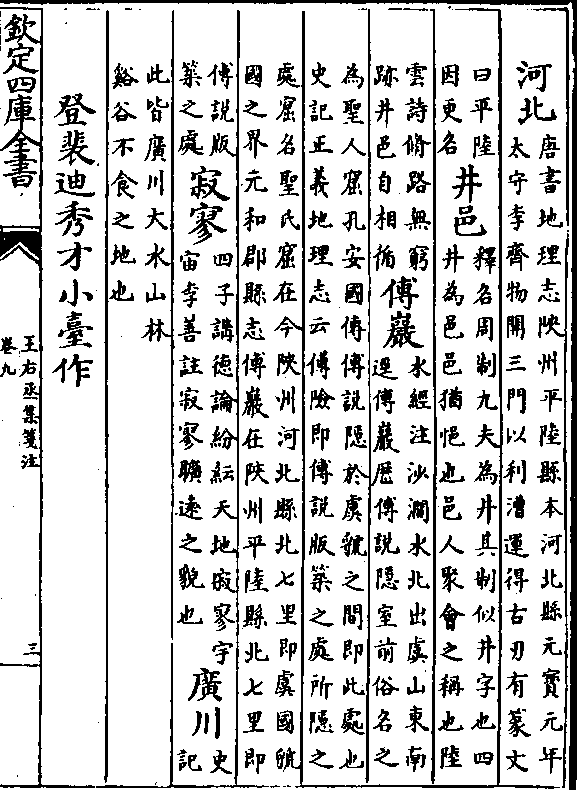 河北唐書地理志陝州平陸縣本河北縣元寶元年
太守李齊物開三門以利漕運得古刃有篆文
曰平陸
因更名
井邑釋名周制九夫為井其制似井字也四
井為邑邑猶悒也邑人聚會之稱也陸
雲詩脩路無窮
跡井邑自相循
傅巖水經注沙澗水北出虞山東南
逕傅巖歷傅說隱室前俗名之
為聖人窟孔安國傳傅說隱於虞虢之間即此處也
史記正義地理志云傅險即傅說版築之處所隱之
處窟名聖氏窟在今陝州河北縣北七里即虞國虢
國之界元和郡縣志傅巖在陝州平陸縣北七里即
傅說版
築之處
寂寥四子講德論紛紜天地寂寥宇
宙李善註寂寥曠遠之貌也
廣川史
記
此皆廣川大水山林
谿谷不食之地也
登裴迪秀才小臺作
欽定四庫全書
王右丞集箋注
卷九
三